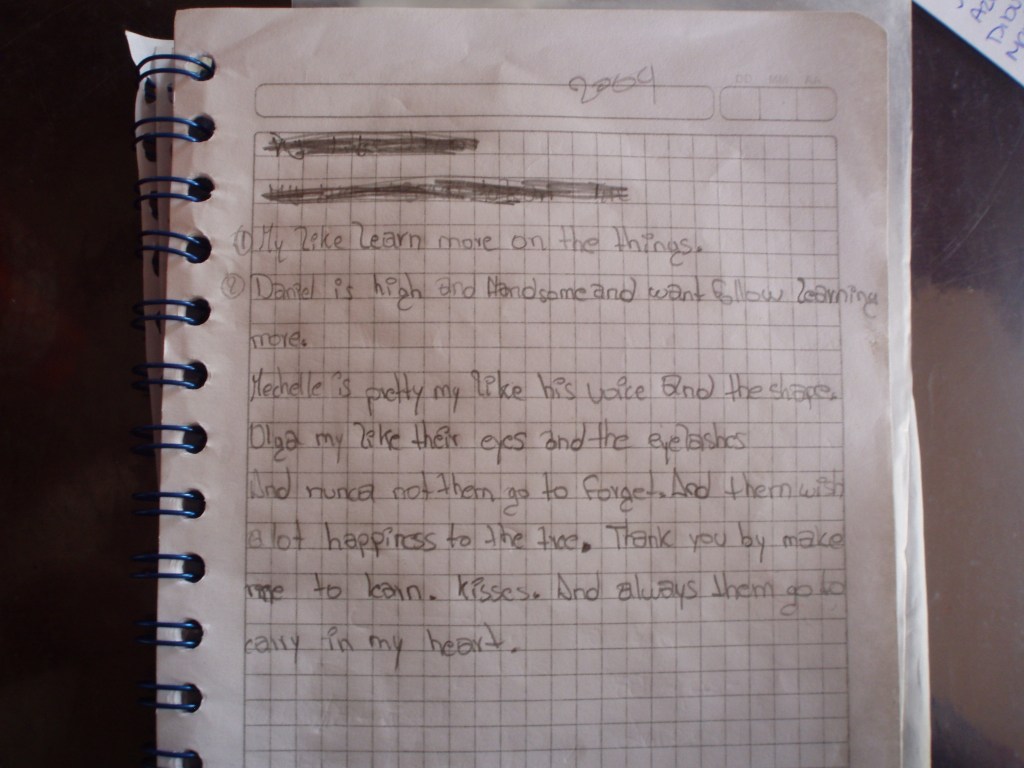 2009
DD MM AA
① My like learn more on the things.
② Daniel is high and Handsome and want follow learning
more.
Mechelle is pretty my like his voice and the shape.
Olga my like their eyes and the eyelashes
And nunca not them go to forget. And them wish
a lot happiness to the tree. Thank you by make
me to learn. Kisses. And always them go to
carry in my heart.